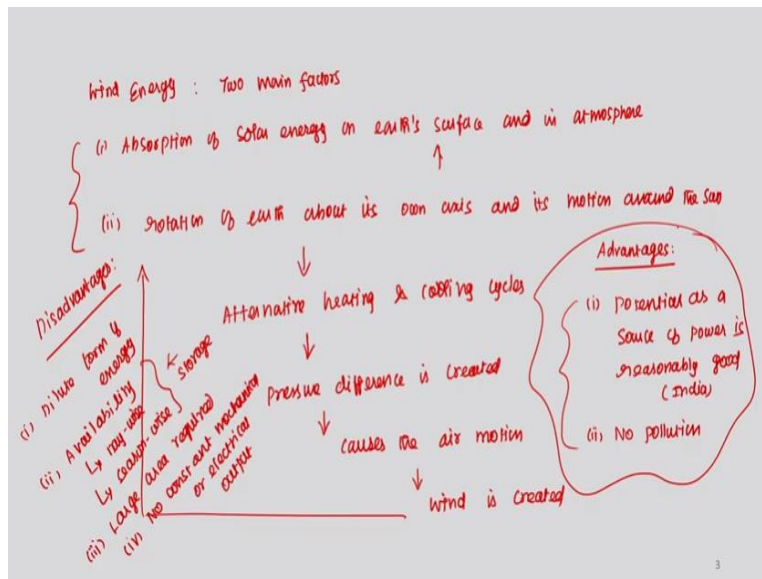 Wind Energy : Two main factors
(i) Absorption of solar energy on earth's surface and in atmosphere
(ii) rotation of earth about its own axis and its motion around the sun
Alternative heating & cooling cycles
Pressure difference is created
causes the air motion
wind is created
Advantages:
(i) Potential as a
source of power is
reasonably good
(India)
(ii) No pollution
Disadvantages:
(i) Dilute form of
energy
(ii) Availability
↳ day-wise
↳ season-wise
storage
(iii) Large area required
(iv) No constant mechanical
or electrical
output
3